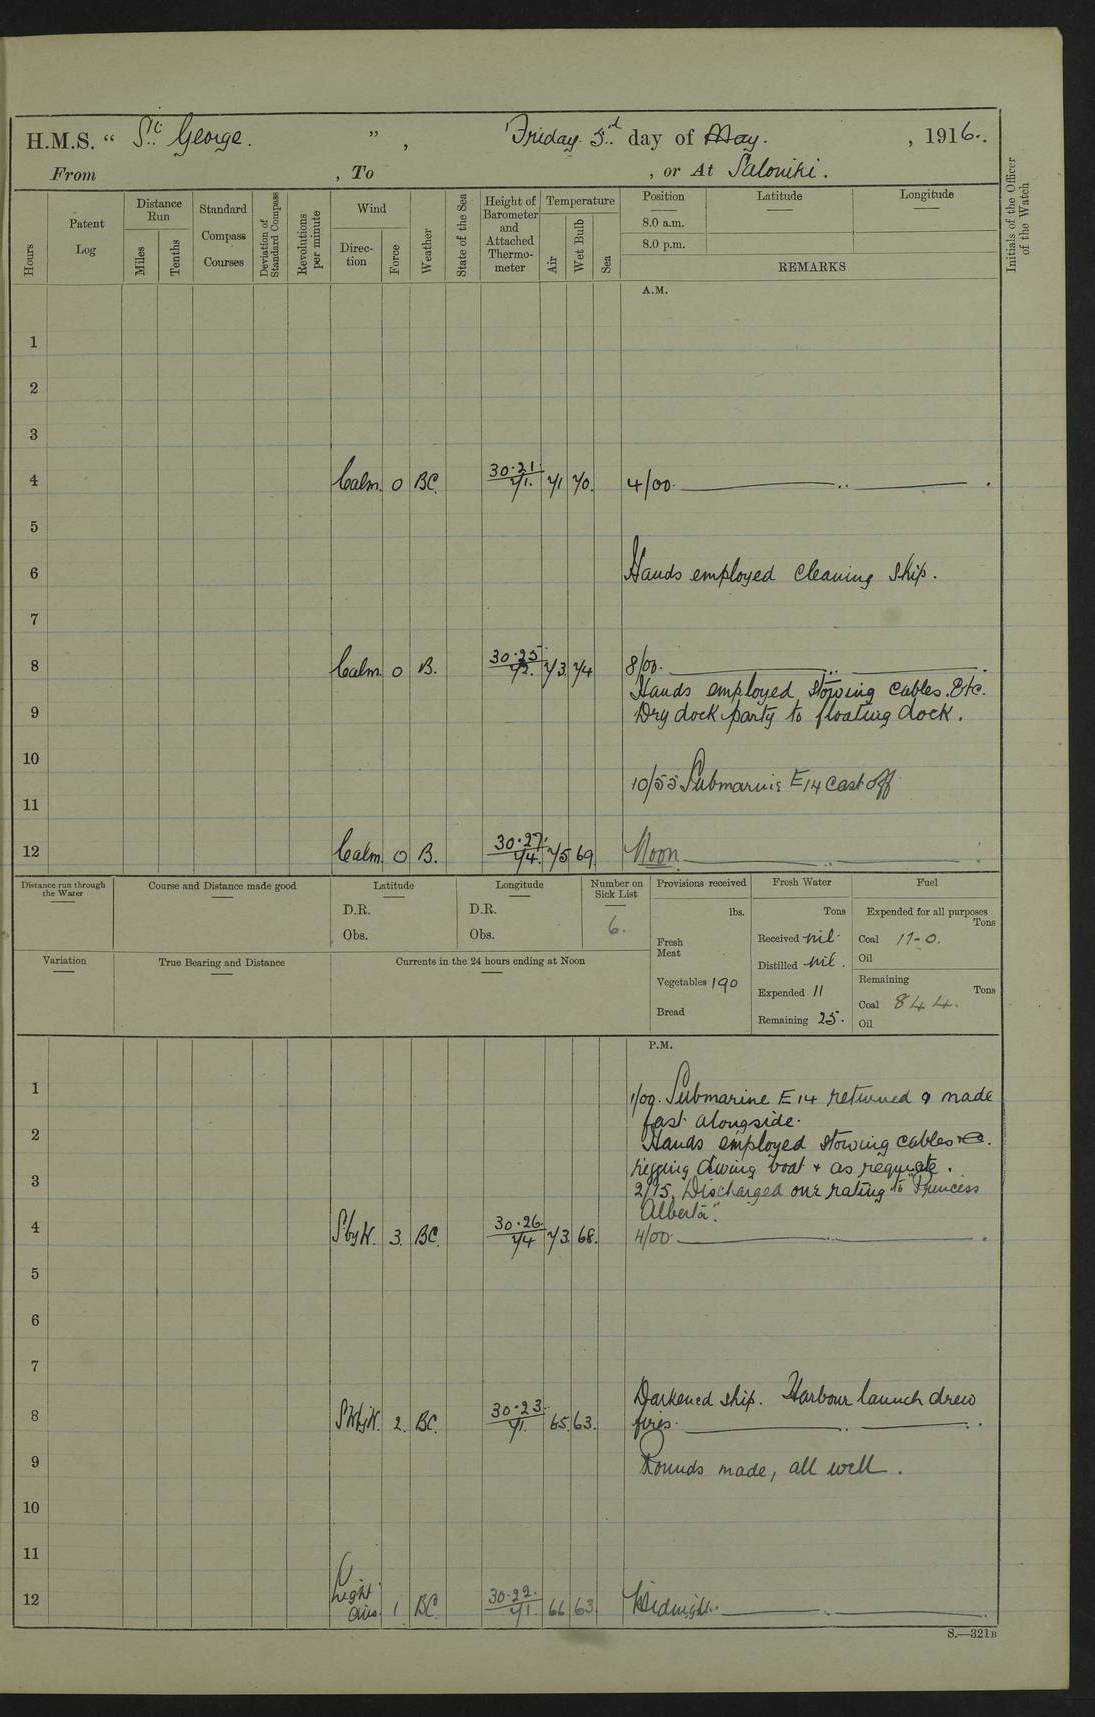 H.M.S. “ St. George. ” , Friday 5th day of May. , 1916.
From , To , or At Saloniki.
Hours
Patent Log
Distance Run
Miles
Tenths
Standard Compass Courses
Deviation of Standard Compass
Revolutions per minute
Wind
Direction
Force
Weather
State of the Sea
Height of Barometer and Attached Thermometer
Temperature
Air
Wet Bulb
Sea
Position Latitude Longitude
8.0 a.m.
8.0 p.m.
REMARKS
Initials of the Officer of the Watch
A.M.
1
2
3
4 Calm. 0 BC. 30.21 71. 71 70. 4/00.
5
6 Hands employed cleaning ship.
7
8 Calm. 0 B. 30.25 72. 73 74 8/00.
Hands employed stowing cables. Etc.
9 Dry dock party to floating dock.
10
10/55 Submarine E14 cast off
11
12 Calm. 0 B. 30.27. 74. 75 69 Noon
Distance run through the Water
Course and Distance made good
Latitude
D.R.
Obs.
Longitude
D.R.
Obs.
Number on Sick List
6.
Provisions received
lbs.
Fresh Meat
Vegetables 190
Bread
Fresh Water
Tons
Received nil.
Distilled nil.
Expended 11
Remaining 25.
Fuel
Expended for all purposes
Tons
Coal 17-0.
Oil
Remaining
Tons
Coal 844.
Oil
Variation
True Bearing and Distance
Currents in the 24 hours ending at Noon
P.M.
1 1/09. Submarine E14 returned & made
fast alongside.
2 Hands employed stowing cables
rigging diving boat & as requisite.
3 2/15. Discharged one rating to "Princess
Alberta".
4 SbyW. 3. BC. 30.26. 74 73 68. 4/00
5
6
7
Darkened ship. Harbour launch drew
8 SWbyW. 2. BC. 30.23. 71. 65. 63. fires.
9 Rounds made, all well.
10
11
12 Light airs. 1 BC. 30.22. 71. 66 63. Midnight.
S.—321B